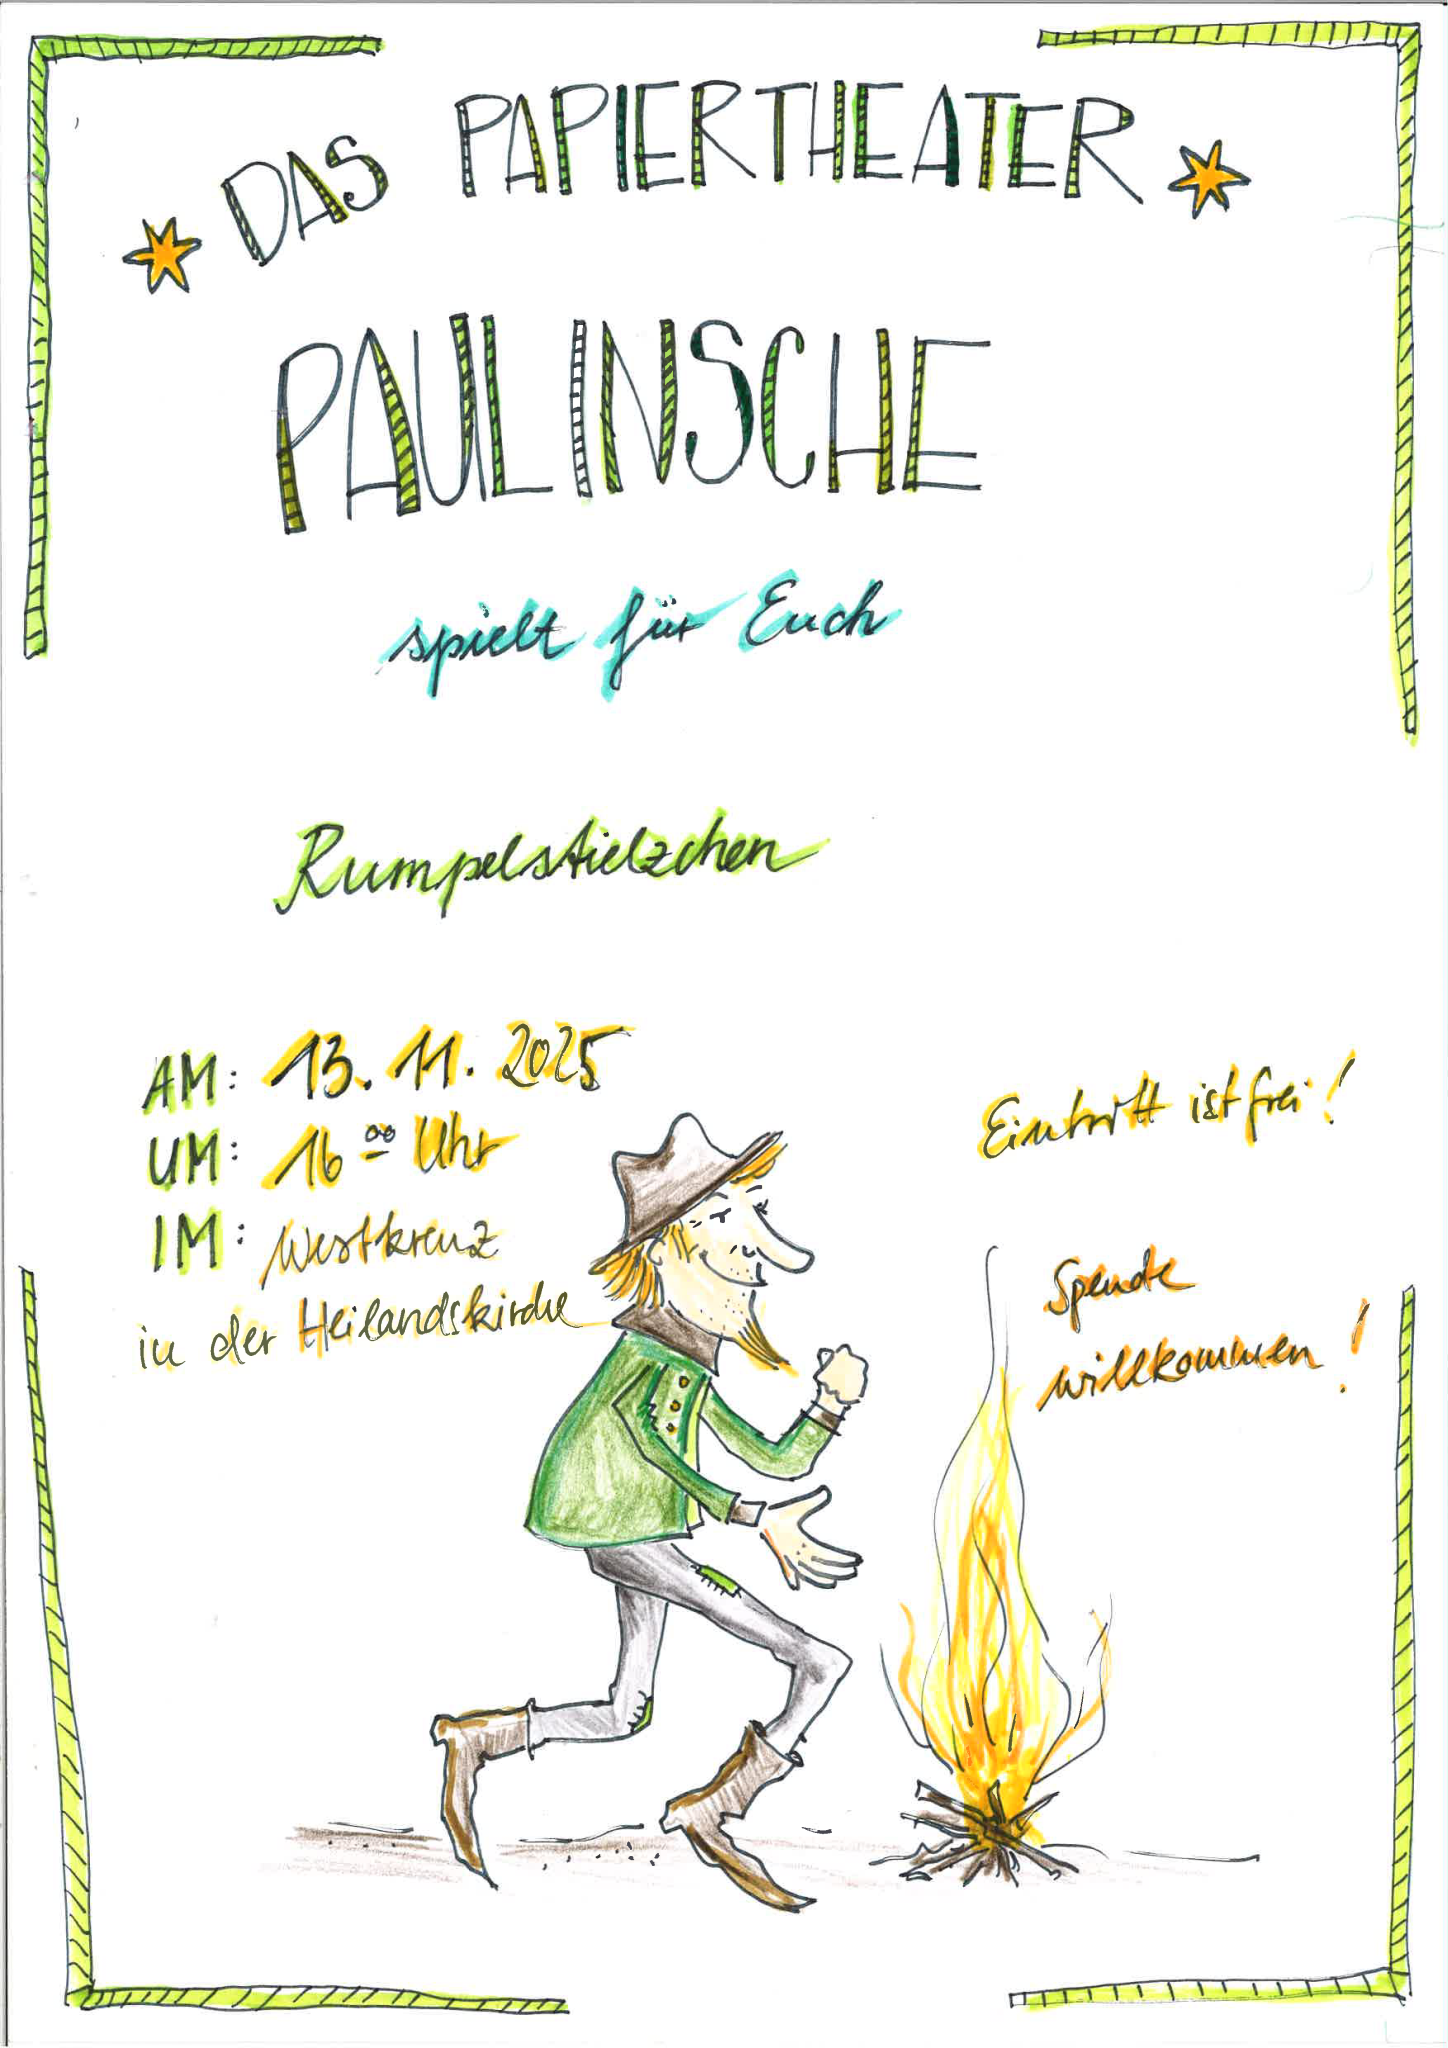 DAS PAPIERTHEATER
PAULINSCHE
spielt für Euch
Rumpelstielzchen
AM: 13. 11. 2025
UM: 16 00 Uhr
IM: Westkreuz
in der Heilandskirche
Eintritt ist frei!
Spende
willkommen!